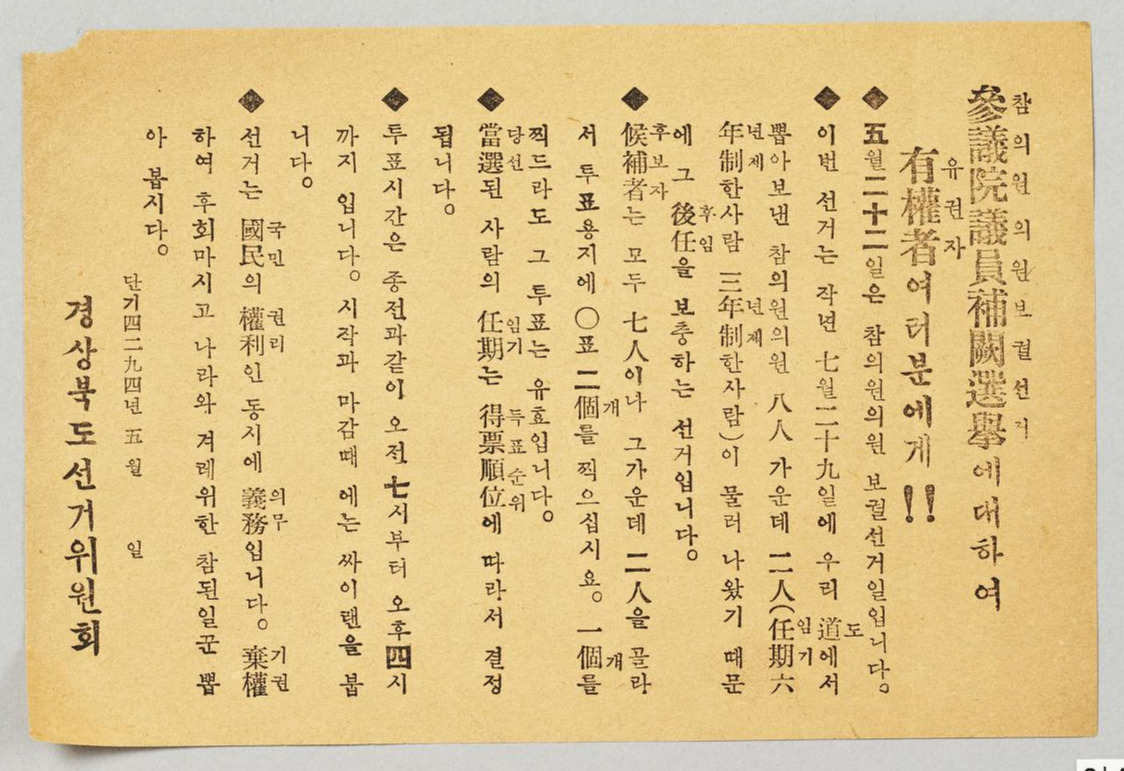 參議院議員補闕選擧에대하여
참의원의원보궐선거
有權者여러분에게!!
유권자
◆ 五월二十二일은 참의원의원 보궐선거일입니다。
◆ 이번 선거는 작년 七월二十九일에 우리 道에서
도
뽑아보낸 참의원의원 八人 가운데 二人(任期六
임기
年制한사람 三年制한사람)이 물러 나왔기 때문
년제 년제
에 그 後任을 보충하는 선거입니다。
후임
◆ 候補者는 모두 七人이나 그가운데 二人을 골라
후보자
서 투표용지에 〇표 二個를 찍으십시요。 一個를
개 개
찍드라도 그 투표는 유효입니다。
◆ 當選된 사람의 任期는 得票順位에 따라서 결정
당선 임기 득표순위
됩니다。
◆ 투표시간은 종전과같이 오전七시부터 오후四시
까지 입니다。시작과 마감때 에는 싸이랜을 붑
니다。
◆ 선거는 國民의 權利인 동시에 義務입니다。棄權
국민 권리 의무 기권
하여 후회마시고 나라와 겨레위한 참된일꾼 뽑
아 봅시다。
단기四二九四년 五월 일
경상북도선거위원회